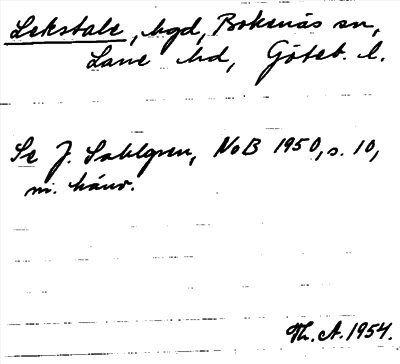 Lekstale, hgd, Bokenäs sn,
Lane hd, Göteb. l.
Se J. Sahlgren, NoB 1950, s. 10,
m. hänv.
Th. A. 1954.